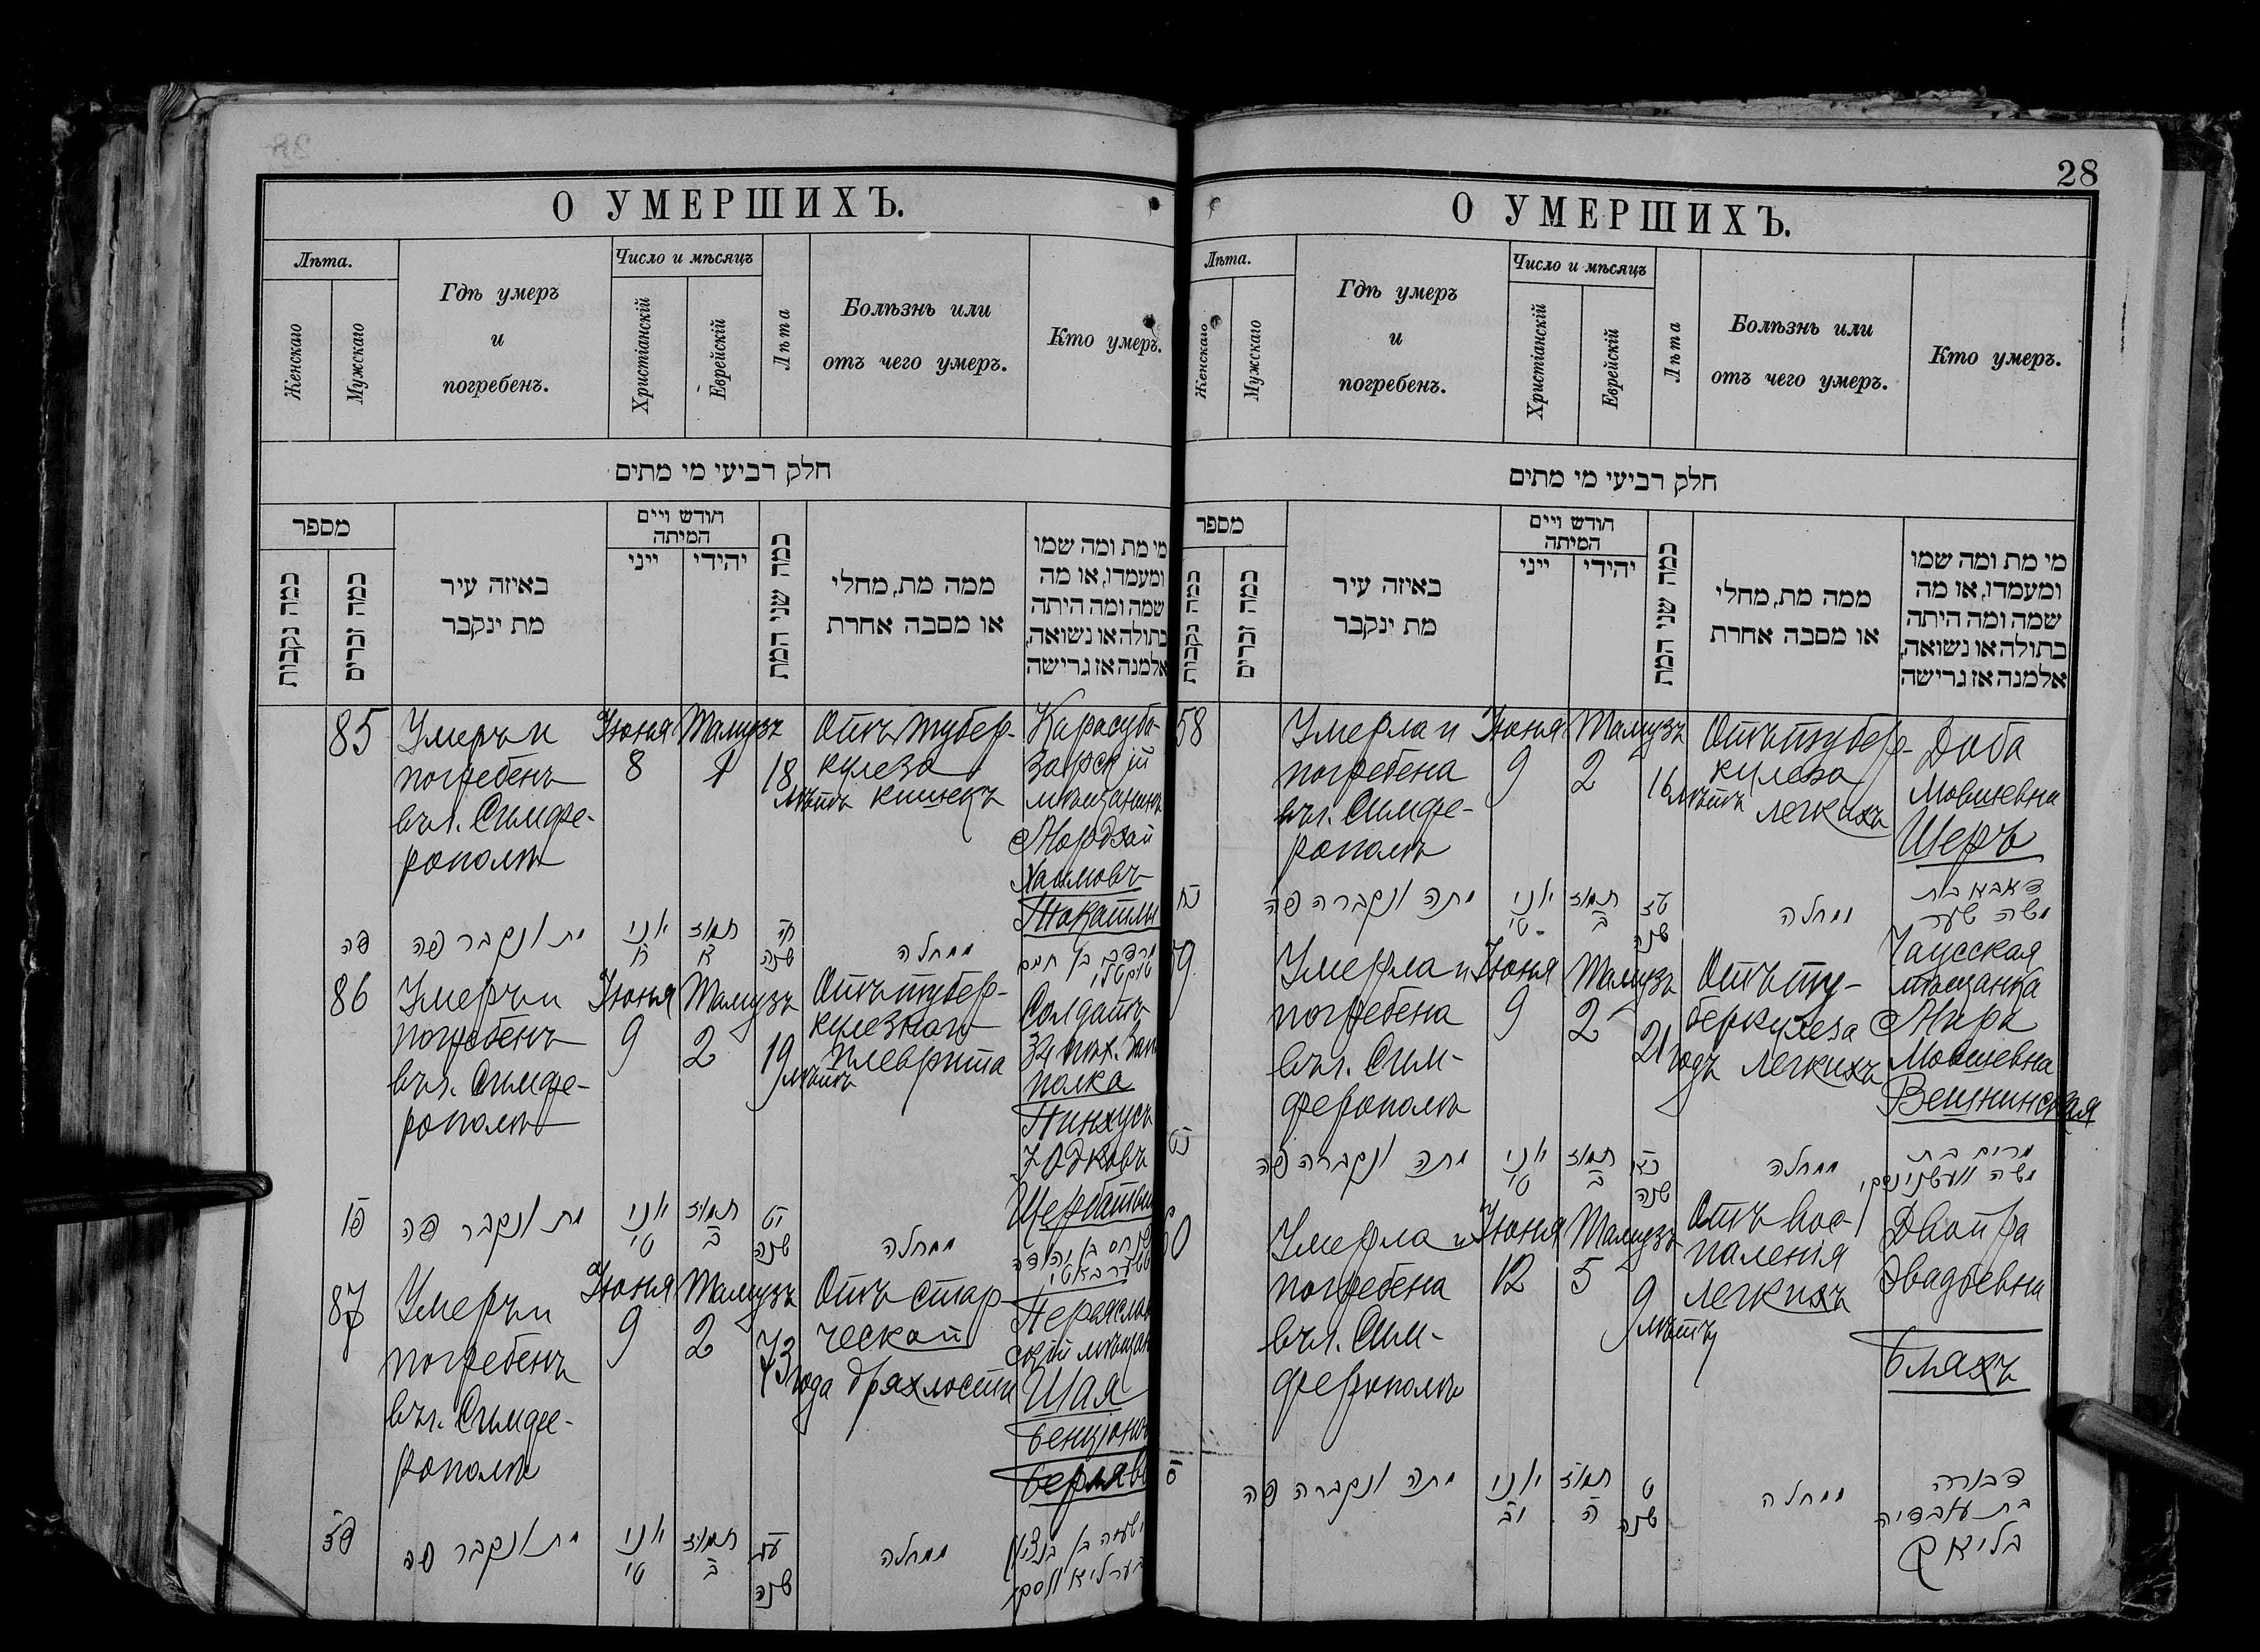 28
О УМЕРШИХЪ.
Лѣта.
Женскаго
Мужскаго
Гдѣ умеръ
и
погребенъ.
Число и мѣсяцъ
Христіанскій
Еврейскій
Лѣта
Болѣзнь или
отъ чего умеръ.
Кто умеръ.
חלק רביעי מי מתים
מספר
כמה נקבות
כמה זכרים
באיזה עיר
מת ינקבר
חודש ויים
המיתה
ייני
יהידי
כמה שני המת
ממה מת, מחלי
או מסבה אחרת
מי מת ומה שמו
ומעמדו, או מה
שמה ומה היתה
בתולה או נשואה,
אלמנה אז גרישה
85
Умеръ и
погребенъ
въ г. Симфе-
рополѣ
Іюня
8
Тамузъ
1
18
лѣтъ
Отъ тубер-
кулеза
кишекъ
Карасуба-
зарскій
мѣщанинъ
Мордхай
Хаимовъ
Токатлы
פה
מת ונקבר פה
יוני
ח
תמוז
א
חי
שנה
ממחלה
מרדכי בן חיים
טוקטלי
86
Умеръ и
погребенъ
въ г. Симфе-
рополѣ
Іюня
9
Тамузъ
2
19
лѣтъ
Отъ тубер-
кулезнаго
плеврита
Солдатъ
34 пѣх. зап
полка
Пинхусъ
Юдковъ
פו
מת ונקבר פה
יוני
טי
תמוז
ב
יט
שנה
ממחלה
פנחס בן יהודה
87
Умеръ и
погребенъ
въ г. Симфе-
рополѣ
Іюня
9
Тамузъ
2
73
года
Отъ стар-
ческой
дряхлости
Переяслав
скій мѣщан
Шая
Бенціонов
פז
מת ונקבר פה
יוני
טי
תמוז
ב
עג
שנה
ממחלה
ישעיה בן בנציון
О УМЕРШИХЪ.
Лѣта.
Женскаго
Мужскаго
Гдѣ умеръ
и
погребенъ.
Число и мѣсяцъ
Христіанскій
Еврейскій
Лѣта
Болѣзнь или
отъ чего умеръ.
Кто умеръ.
חלק רביעי מי מתים
מספר
כמה נקבות
כמה זכרים
באיזה עיר
מת ינקבר
חודש ויים
המיתה
ייני
יהידי
כמה שני המת
ממה מת, מחלי
או מסבה אחרת
מי מת ומה שמו
ומעמדו, או מה
שמה ומה היתה
בתולה או נשואה,
אלמנה אז גרישה
58
Умерла и
погребена
въ г. Симфе-
рополѣ
Іюня
9
Тамузъ
2
16
лѣтъ
Отъ тубер-
кулеза
легкихъ
Доба
Мовшевна
Шеръ
נח
מתה ונקברה פה
יוני
טי
תמוז
ב
טז
שנה
ממחלה
דאבא בת
משה שער
59
Умерла и
погребена
въ г. Сим-
ферополѣ
Іюня
9
Тамузъ
2
21
годъ
Отъ ту-
беркулеза
легкихъ
Чаусская
мѣщанка
Мира
Мовшевна
Вешнинская
נט
מתה ונקברה פה
יוני
טי
תמוז
ב
כא
שנה
ממחלה
מרים בת
משה וועשנינסקי
60
Умерла и
погребена
въ г. Сим-
ферополѣ
Іюня
12
Тамузъ
5
9
лѣтъ
Отъ вос-
паленія
легкихъ
Двойра
Эвадьевна
Бляхъ
ס
מתה ונקברה פה
יוני
יב
תמוז
ה
ט
שנה
ממחלה
דבורה
בת עובדיה
בליאך